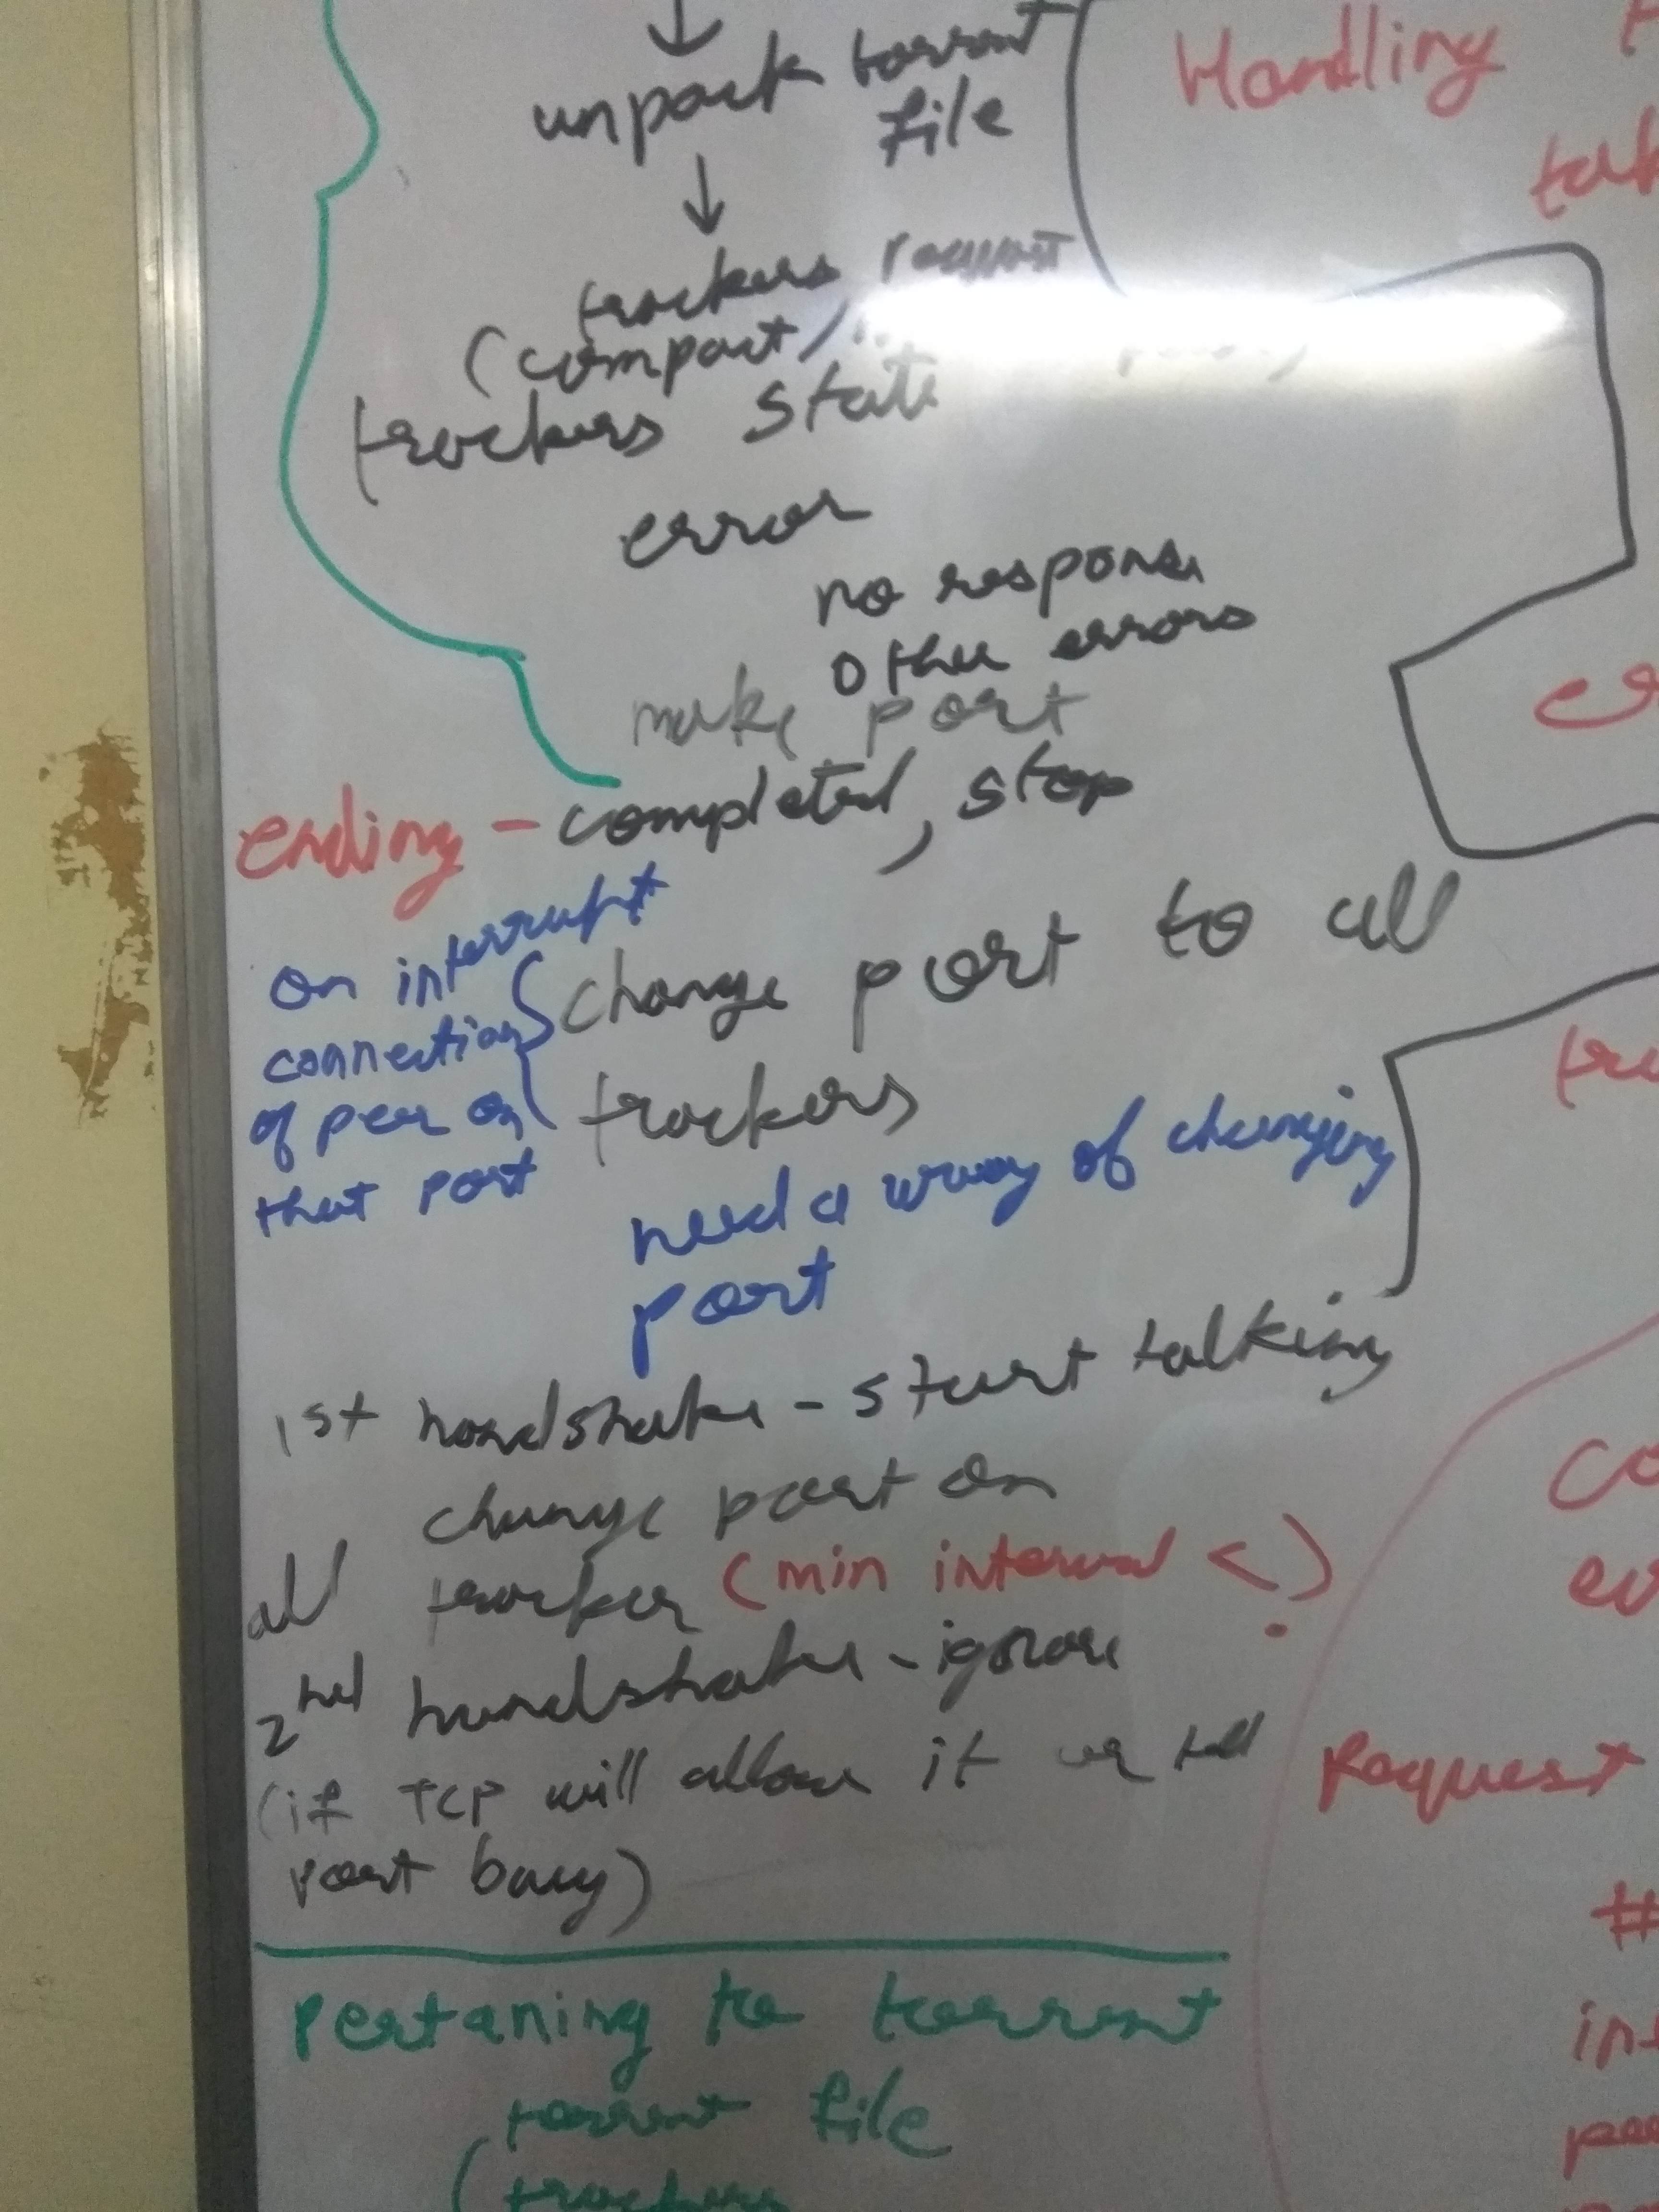 unpack torrent
file
trackers, request
(compact/
trackers state
error
no response
other errors
make port
ending - completed, stop
on interrupt
connection
of peer on
that port
change port to all
trackers
need a way of changing
port
1st handshake - start talking
change port on
all tracker (min interval < )
2nd handshake - ignore
(if TCP will allow it or tell
port busy)
Pertaning to torrent
torrent file
(trackers
Handling
Request
#